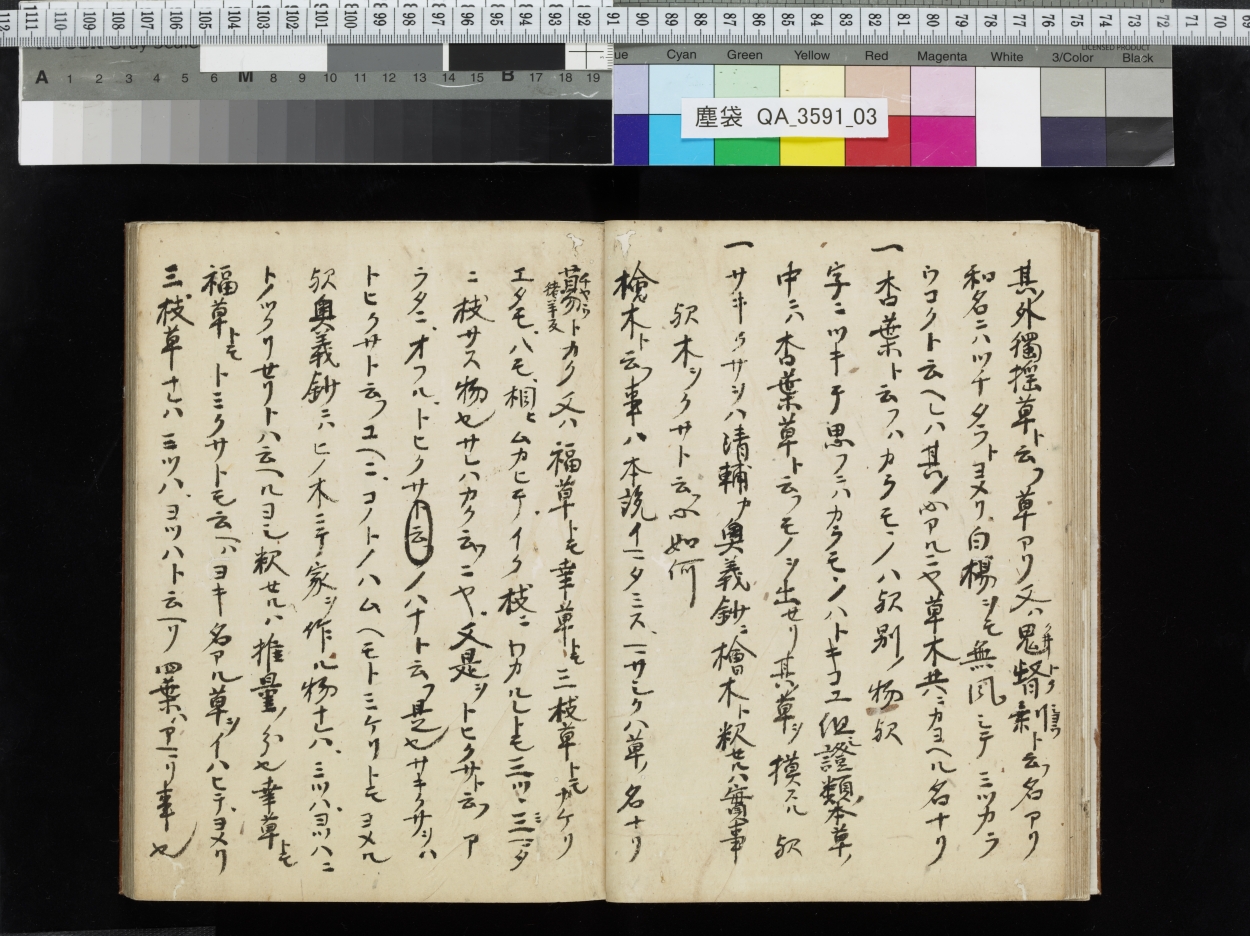 塵袋 QA_3591_03
Cyan Green Yellow Red Magenta White 3/Color Black
A 1 2 3 4 5 6 M 8 9 10 11 12 13 14 15 B 17 18 19
其外獨揺草ト云フ草アリ又ハ鬼督郵ト云フ名アリ
和名ニハツチタラトヨメリ白楊シモ無風シテミツカラ
ウコクト云ヘレハ其ノ心アルニヤ草木共ニカヨヘル名ナリ
一 杏葉ト云フハカラモノハ歟別ノ物歟
字ニツキテ思フニハカラモンハトキコユ但證類本草ノ
中ニハ杏葉草ト云フモノヲ出セリ其草ヲ摸スル歟
一 サキクサヲハ清輔カ奥義鈔ニ檜木ト釈セルハ實事
歟木ヲクサト云フ心如何
檜木ト云フ事ハ本説イマタミスマサシクハ草ノ名ナリ
蒭トカク又ハ福草トモ幸草トモ三枝草トモカケリ
エタモハモ相ヒムカヒテイク枝ニワカルレトモ三ツニ三マタ
ニ枝サス物也サレハカク云フニヤ又是ヲトヒクサト云フア
ラタニオフルトヒクサト云ノハナト云フ是也サキクサヲハ
トヒクサト云フユヘニコノトノハムヘモトミケリトモヨメル
歟奥義鈔ニハヒノ木ニテ家ヲ作ル物ナレハミツハヨツハニ
トノツクリセリトハ云ヘルヨシ釈セルハ推量ノ分也幸草トモ
福草トモトミクサトモ云フハヨキ名アル草ヲイハヒテヨメリ
三枝草ナレハ三ツハヨツハト云ヘリ四葉ハアマリ事也